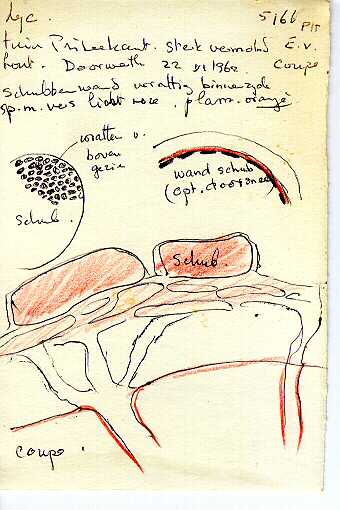 Lyc. 5166 P15
tuin Prikeekant. sterk vermolmd E.v.
hout. Doorwerth 22 VI 1962 Coupe
Schubbenwand wrattig binnenzijde
sp.m. vers licht roze. plasm. oranje
wratten v.
boven
gezien
Schub.
wand schub
(opt. doorsnee)
Schub.
Coupe.